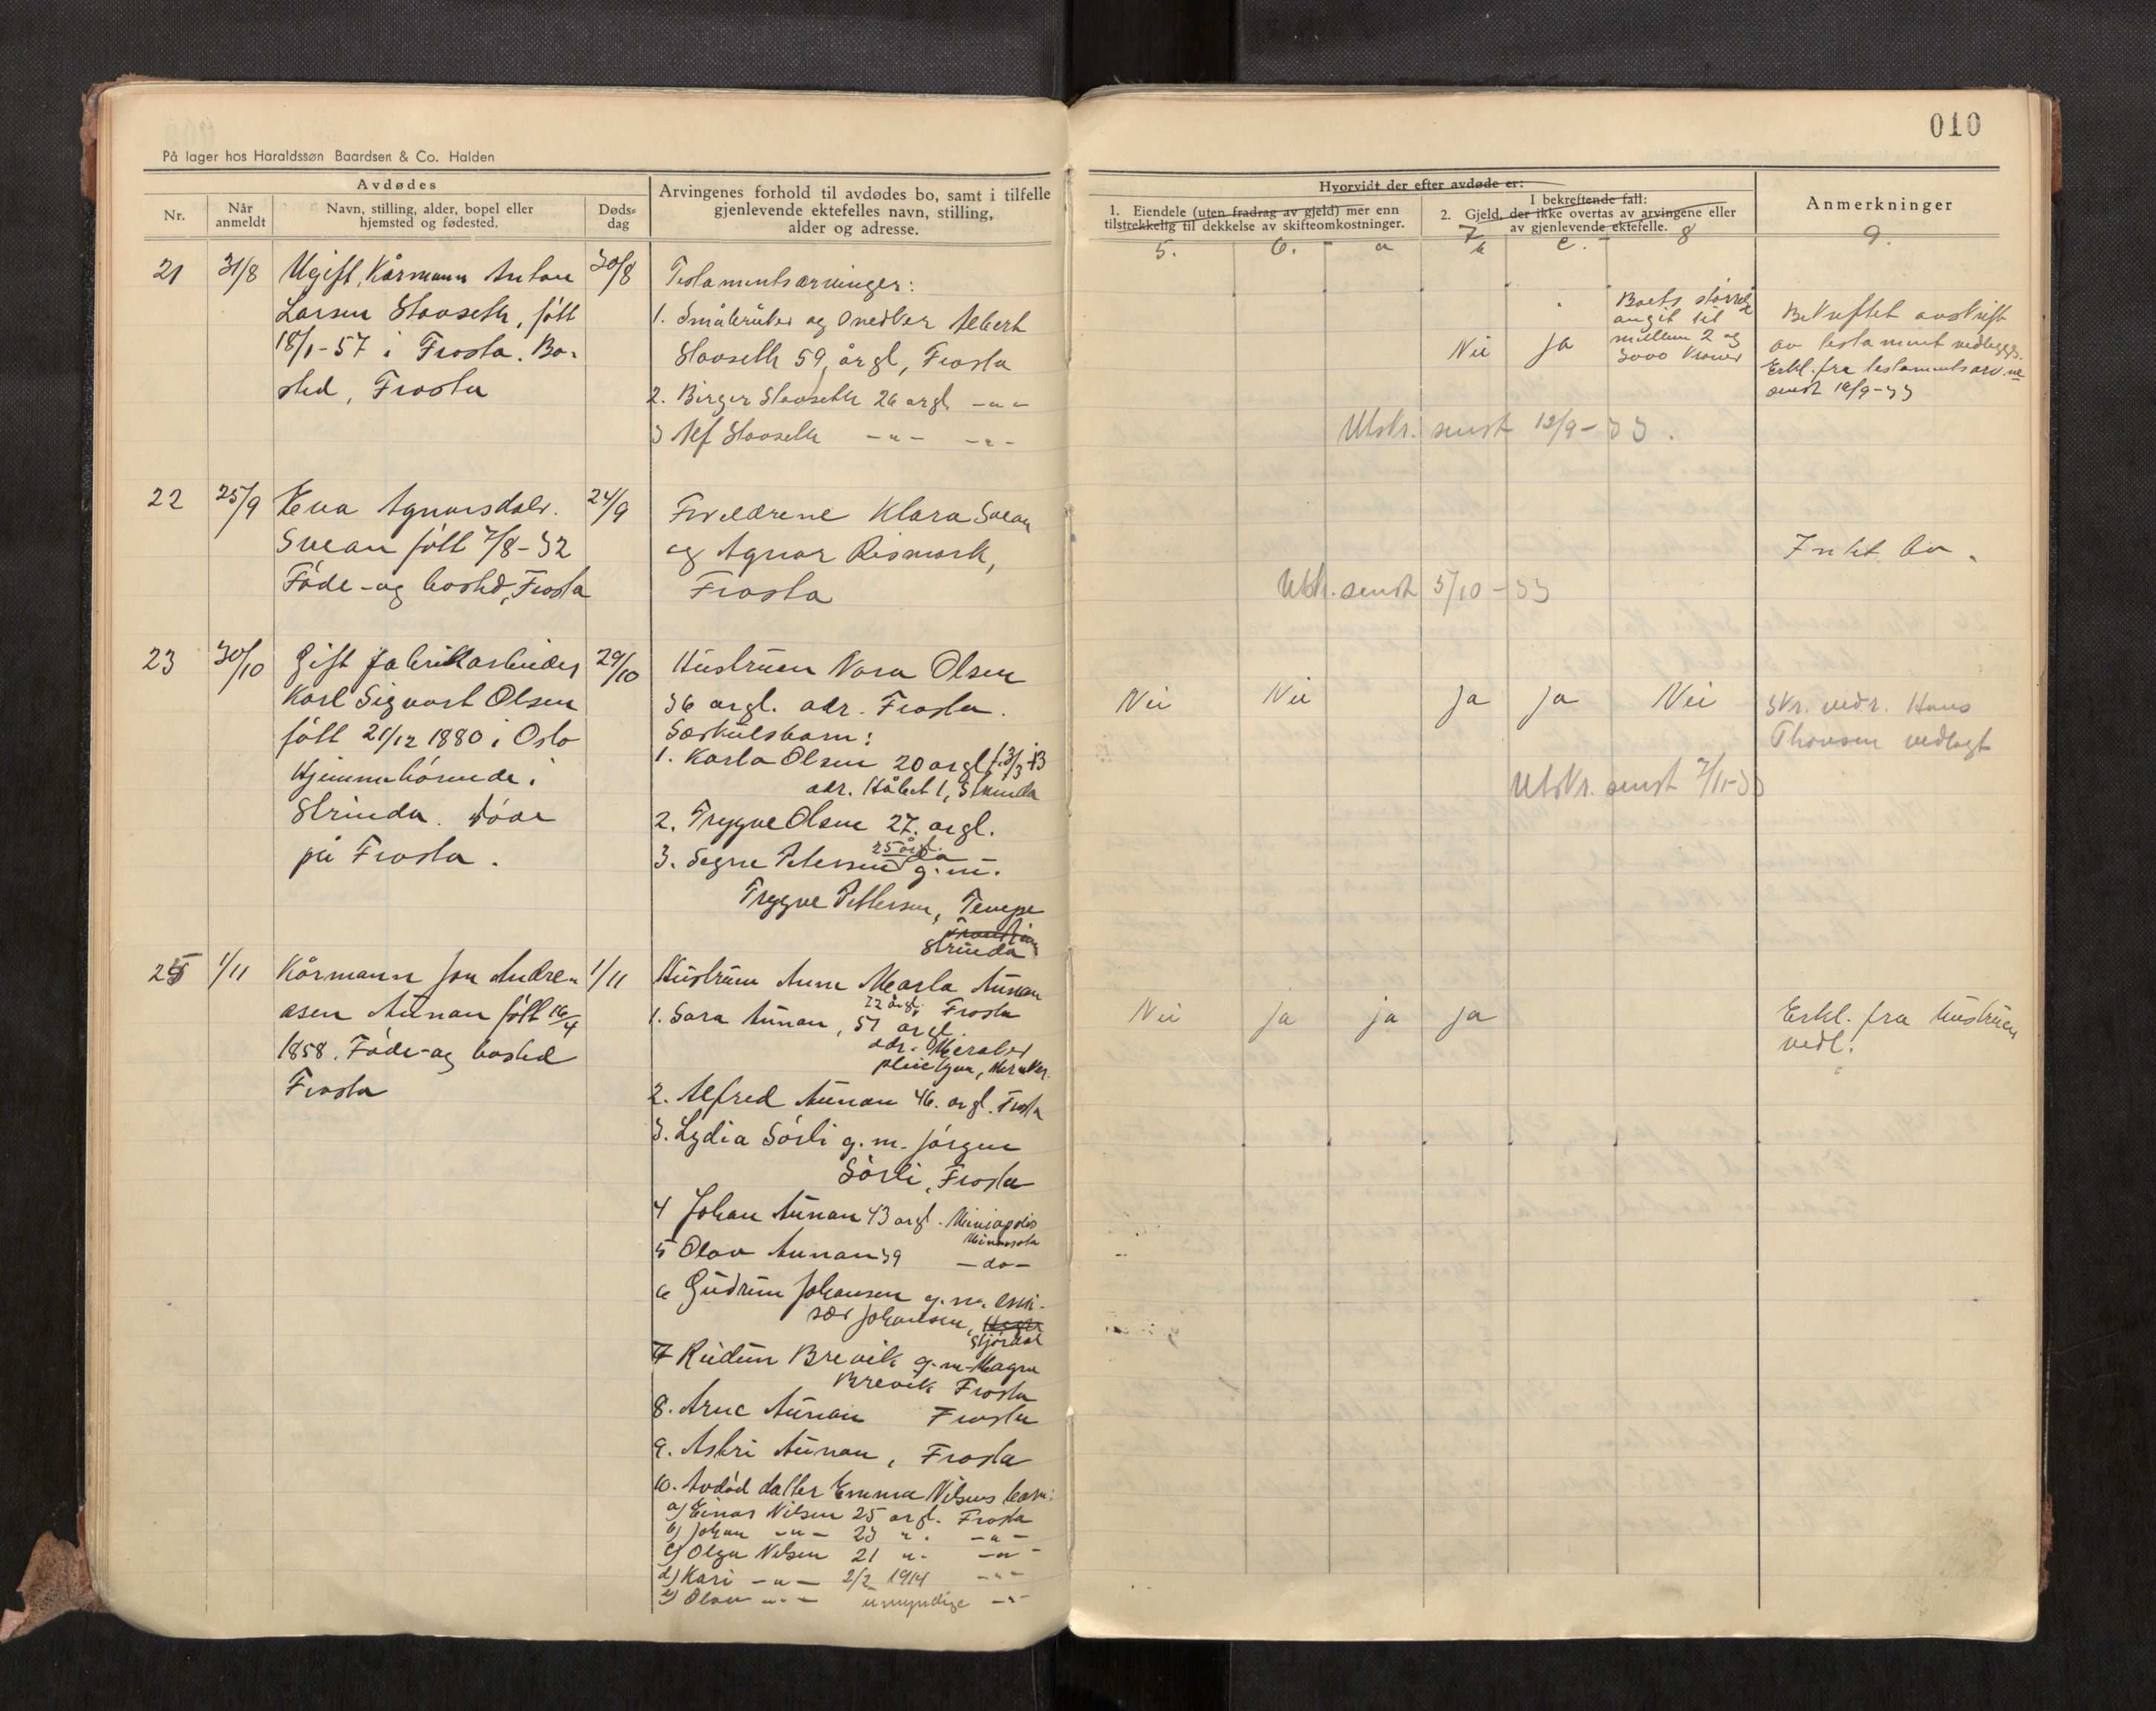 010
På lager hos Haraldssøn Baardsen & Co. Halden
Avdødes
Nr.
Når anmeldt
Navn, stilling, alder, bopel eller
hjemsted og fødested.
Døds-
dag
Arvingenes forhold til avdødes bo, samt i tilfelle
gjenlevende ektefelles navn, stilling,
alder og adresse.
Hvorvidt der efter avdøde er:
1. Eiendele (uten fradrag av gjeld) mer enn
tilstrekkelig til dekkelse av skifteomkostninger.
I bekreftende fall:
2. Gjeld, der ikke overtas av arvingene eller
av gjenlevende ektefelle.
Anmerkninger
5. 6. a 7 b c. 8 9.
21 31/8 Ugift, Kårmann Anton 30/8
Larsen Stavseth, født
18/1-57 i Frosta. Bo-
sted, Frosta
Testamentsarvinger:
1. Småbruker og snedker Albert
Stavseth 59 årgl, Frosta
2. Birger Stavseth 26 årgl. -"-
3 Alf Stavseth -"- -"-
Nei Ja
Boets størrelse
angit til
mellem 2 og
3000 Kroner
Bekreftet avskrift
av testament vedlegges.
Erkl. fra testamentsarv.ne
sendt 12/9-33
Utskr. sendt 12/9-33.
22 25/9 Eva Agnarsdatr. 24/9
Svean født 7/8-32
Føde- og bosted, Frosta
Foreldrene Klara Svean
og Agnar Rismark,
Frosta
Intet bo.
Utskr. sendt 5/10-33
23 30/10 Gift fabrikkarbeider 29/10
Karl Sigvart Olsen
født 21/12 1880 i Oslo
Hjemmehørende i
Strinda. Døde
på Frosta.
Hustruen Nora Olsen
36 årgl. adr. Frosta.
Særkulsbarn:
1. Karla Olsen 20 årgl f. 3/3 13
adr. Håbet 1, Strinda
2. Trygve Olsen 27. årgl.
3. Signe Petersen 25 årgl. g.m.
Trygve Pettersen, Tempe
Strinda
Nei Nei Ja Ja Nei
Skr. vedr. Hans
Thonsen vedlagt
Utskr. sendt 7/11-33
25 1/11 Kårmann Jon Andre- 1/11
asen Aunan født 16/4
1858. Føde- og bosted
Frosta
Hustruen Anne Marta Aunan
72 årgl. Frosta
1. Sara Aunan, 51 årgl.
adr. Meraker
pleiehjem, Meraker.
2. Alfred Aunan 46. årgl. Frosta
3. Lydia Sørli g.m. Jørgen
Sørli, Frosta
4 Johan Aunan 43 årgl. Miniapolis
Minnesota
5 Olav Aunan 39 -do-
6 Gudrun Johansen g.m. emi-
sær Johansen,
Stjørdal
7 Reidun Brevik g.m. Magne
Brevik Frosta
8. Arne Aunan Frosta
9. Astri Aunan, Frosta
10. Avdød datter Emma Nilsens barn:
a) Einar Nilsen 25 årgl. Frosta
b) Johan -"- 23 " -"-
c) Olga Nilsen 21 " -"-
d) Kari -"- 2/2 1914 -"-
e) Olav -"- umyndige -"-
Nei Ja ja ja
Erkl. fra hustruen
vedl.